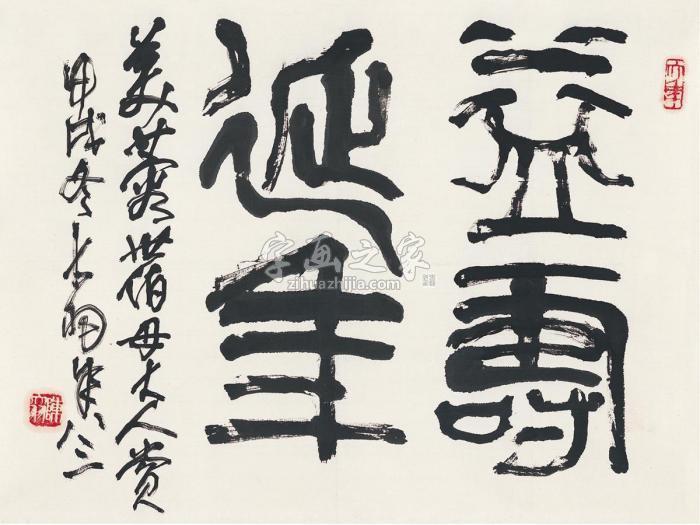 益壽
延年
美蓉世伯母大人賞
甲戌冬大羽年八三
字画之家
zihuazhijia.com